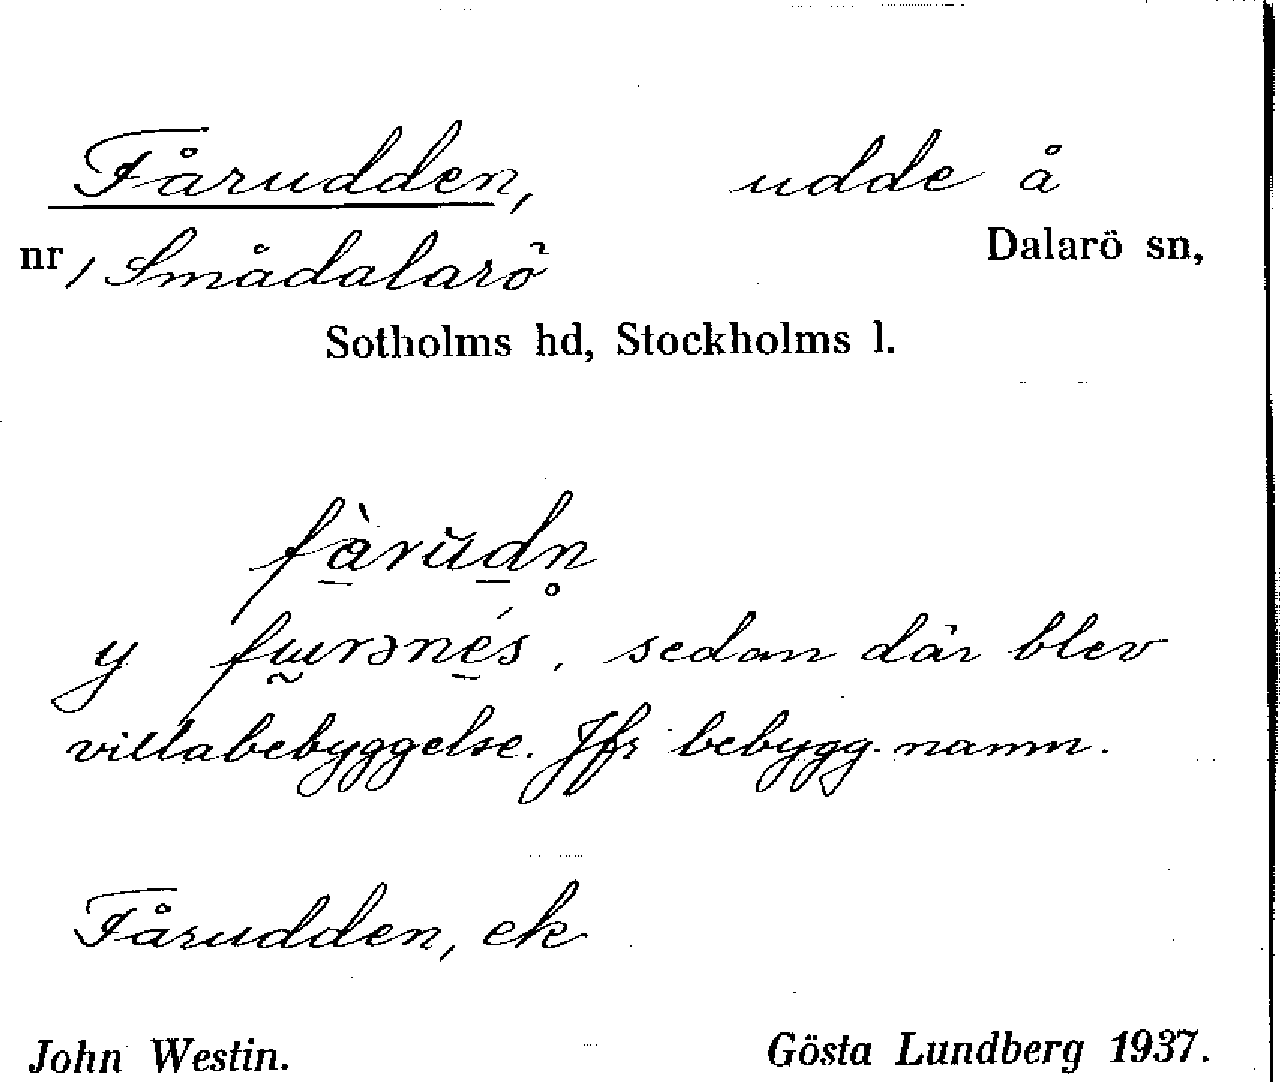 Fårudden, udde å
nr / Smådalarö Dalarö sn,
Sotholms hd, Stockholms l.
fàrŭdn̥
y fɯrɔnés, sedan där blev
villabebyggelse. Jfr bebygg. namn.
Fårudden, ek
John Westin. Gösta Lundberg 1937.